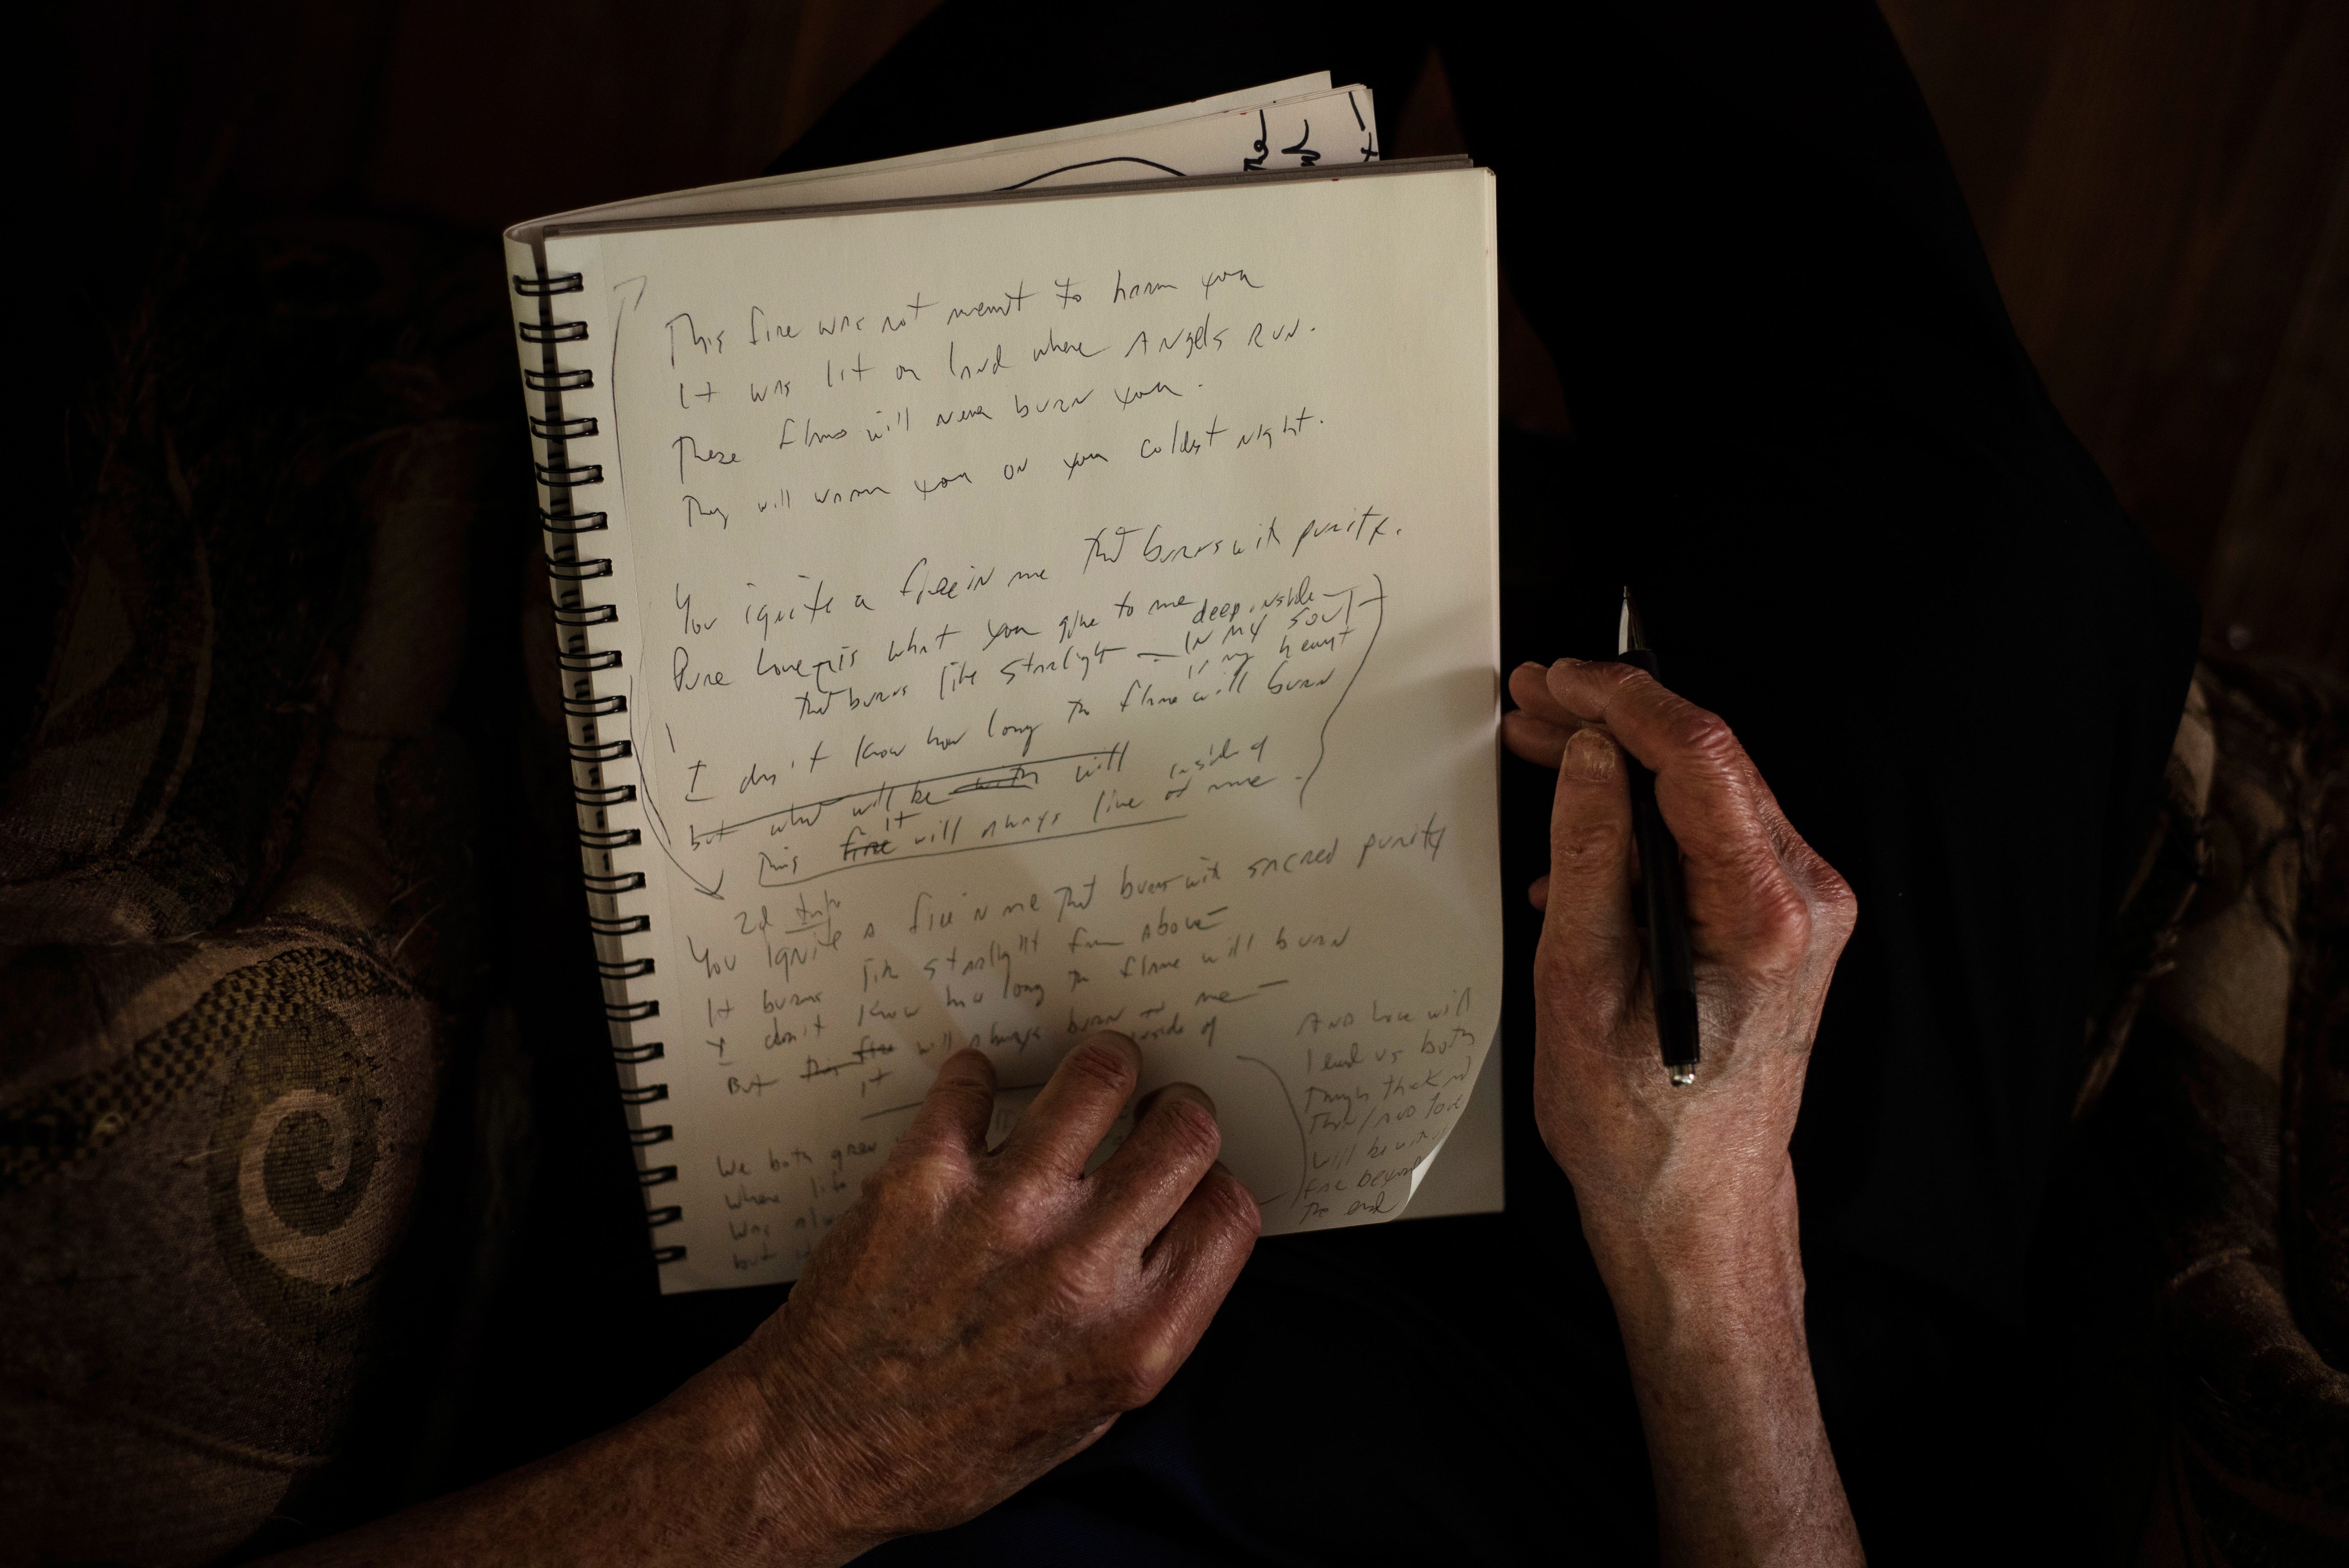 This fire was not meant to harm you
It was lit on land where Angels Run.
These flames will never burn you.
They will warm you on your coldest night.
You ignite a fire in me that burns with purity.
Pure Love is what you give to me deep inside
that burns like starlight — in my soul
in my heart
I don't know how long the flame will burn
but what will be with will
inside of
This fire will always live of me
it
2d
You ignite a fire in me that burns with sacred purity
It burns like starlight from above
I don't know how long the flame will burn
But this fire will always burn in me
it inside of
We both grew
where
was
but
And love will
lead us both
through thick and
thin / and love
will be with us
far beyond
the end